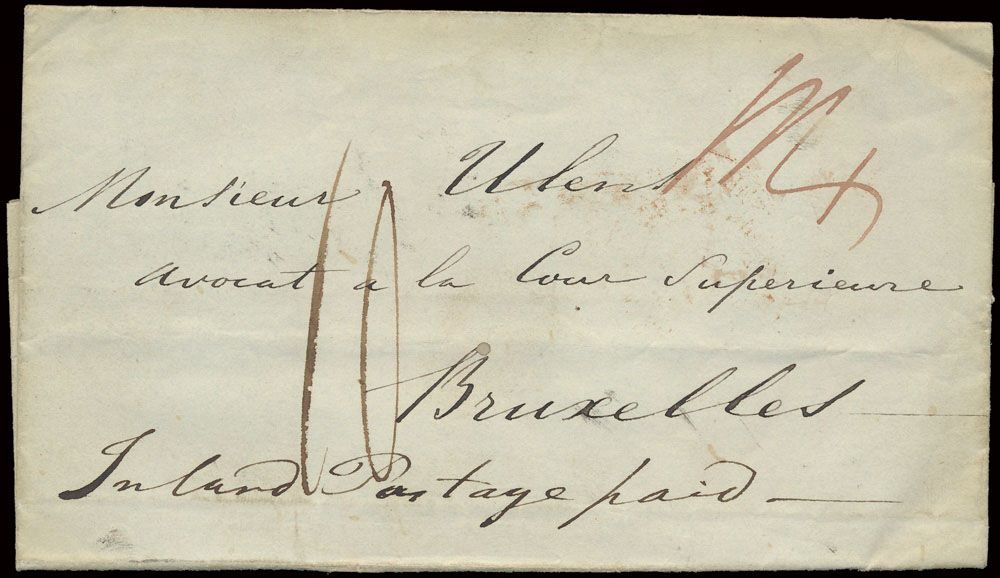 Monsieur Ulens
avocat a la Cour Superieure
10
Bruxelles
Inland Postage paid